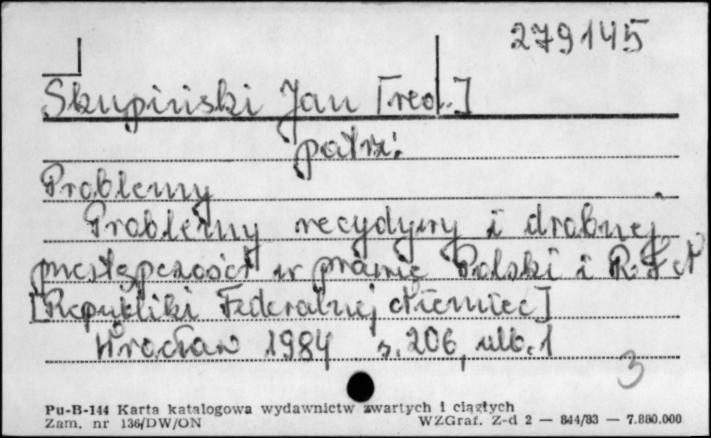 279145
Skupiński Jan [red.]
patrz:
Problemy
Problemy recydywy i drobnej
przestępczości w prawie Polski i R.F.N
[Republiki Federalnej Niemiec]
Wrocław 1984 s. 206, nlb. 1
3
Pu-B-144 Karta katalogowa wydawnictw zwartych i ciągłych
Zam. nr 136/DW/ON WZGraf. Z-d 2 — 844/83 — 7.880.000